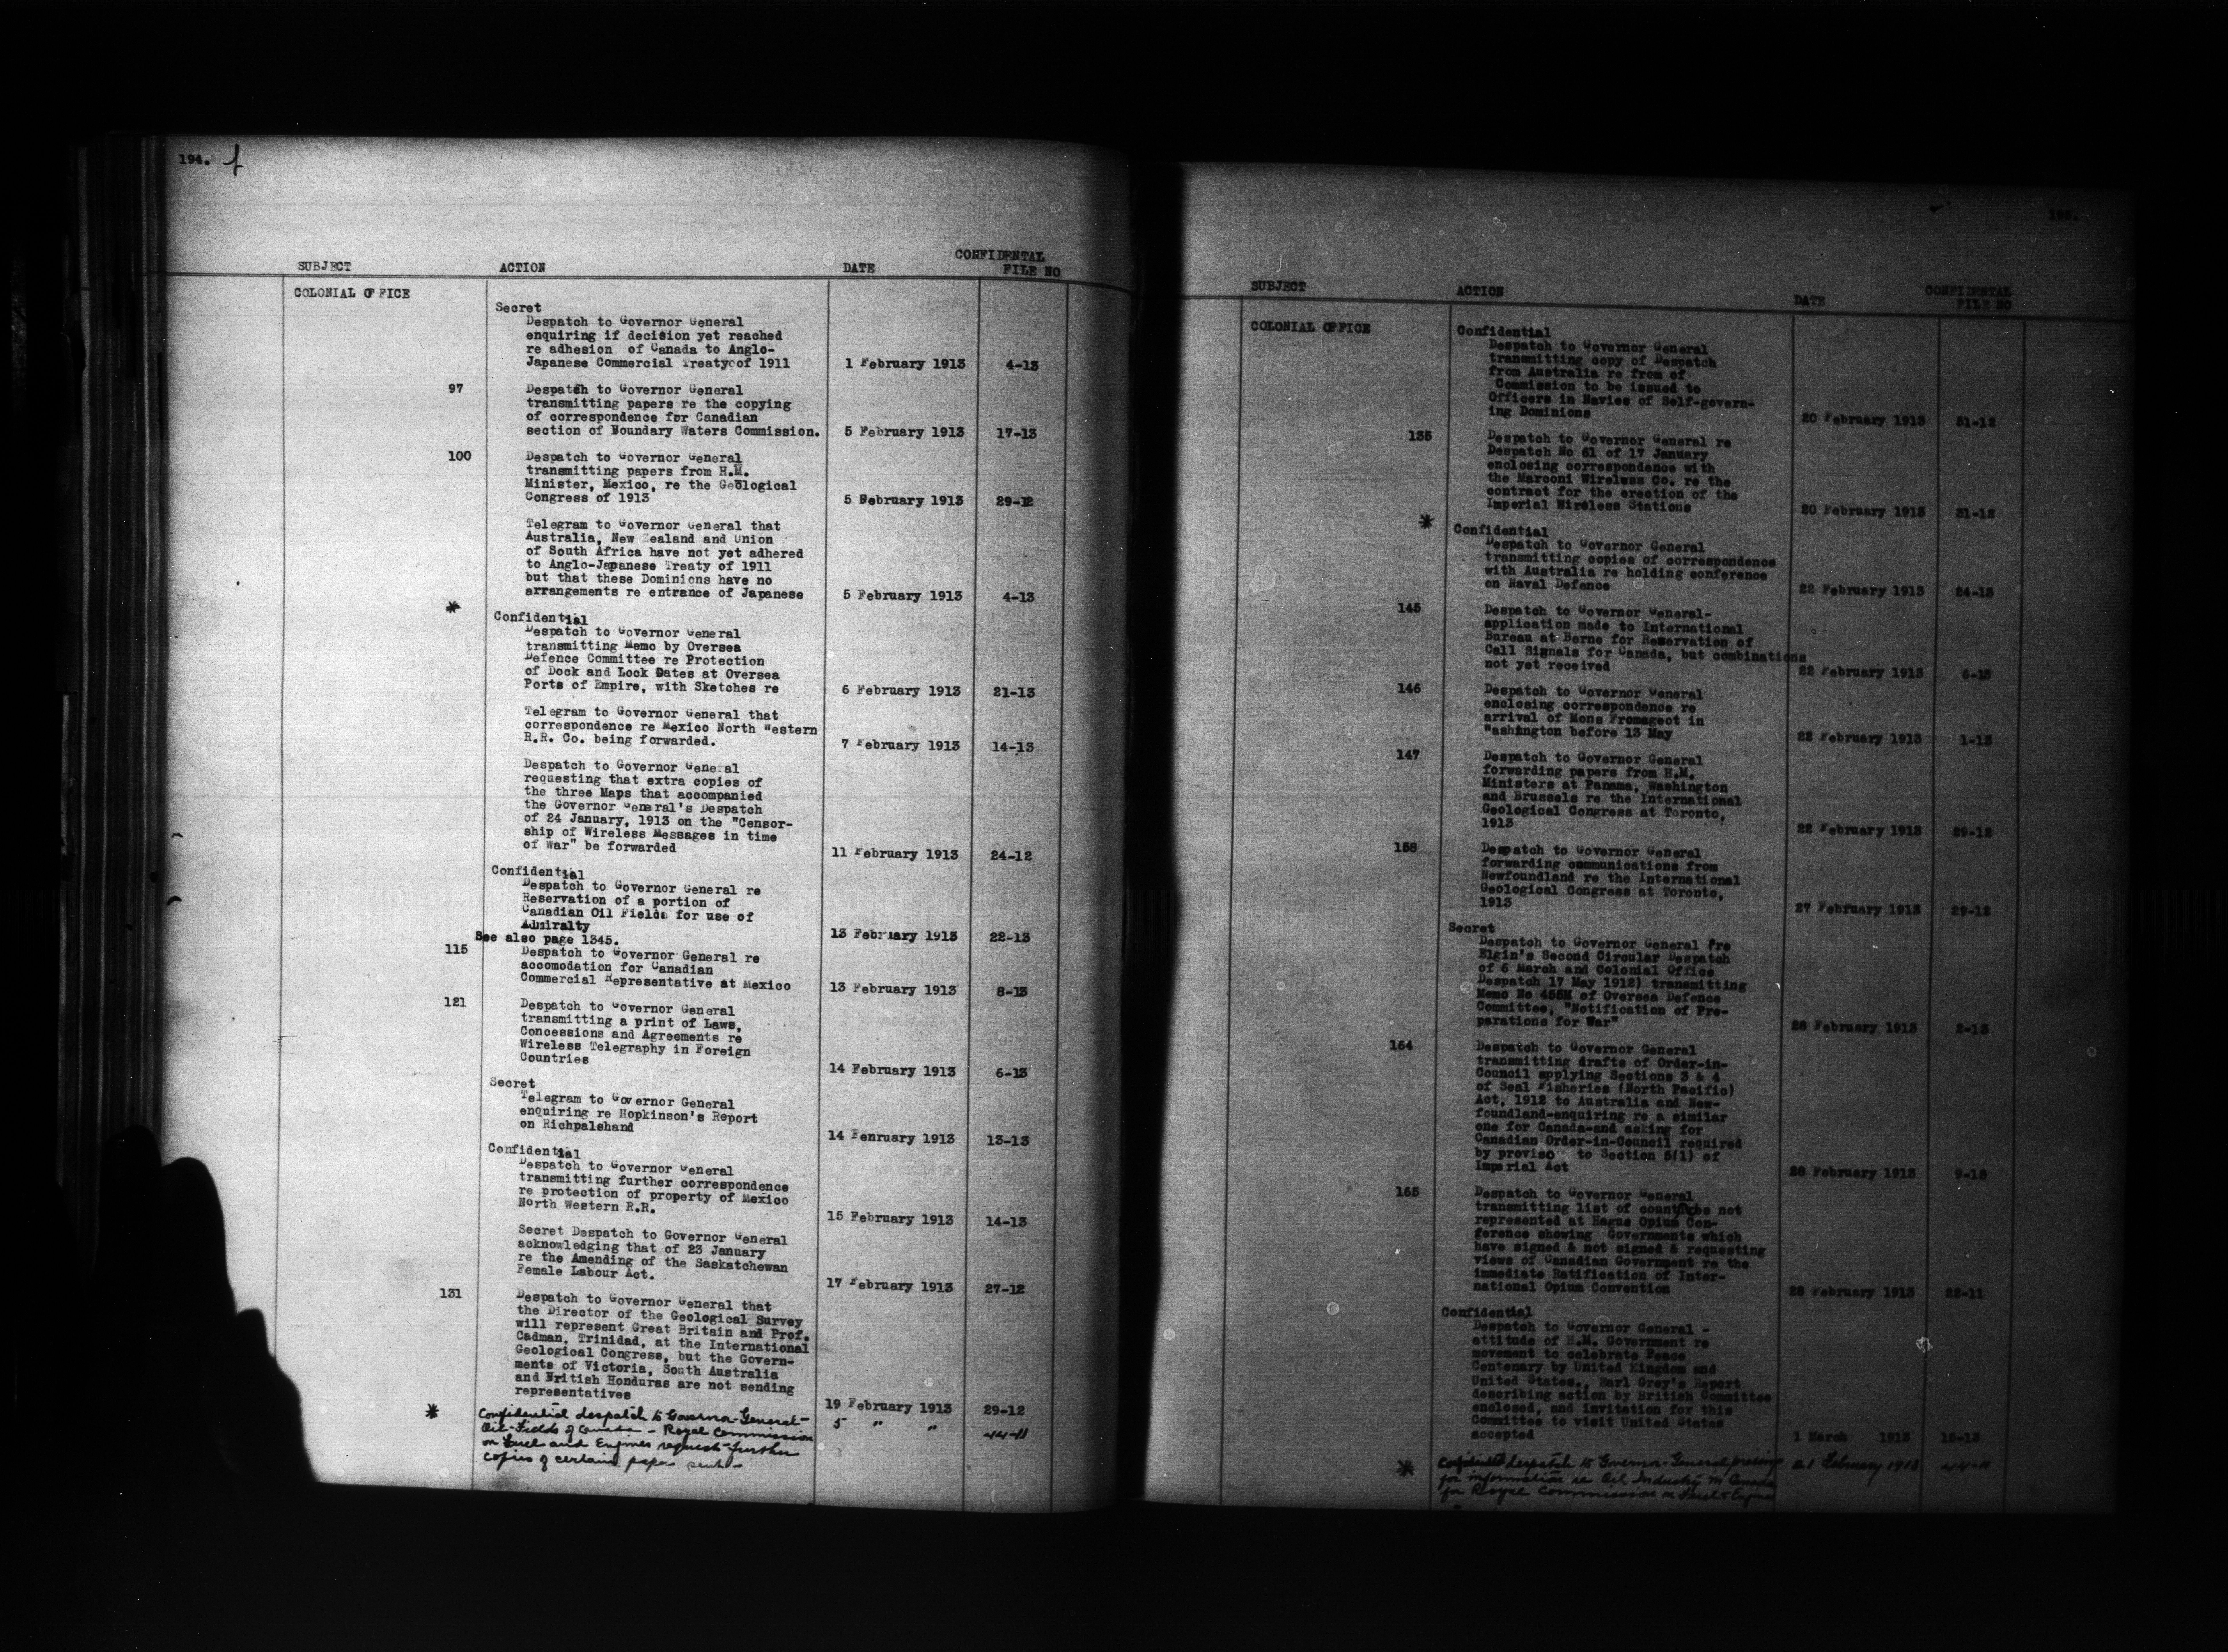 194. f
SUBJECT ACTION DATE CONFIDENTAL FILE NO
COLONIAL OFFICE
Secret
Despatch to Governor General
enquiring if decision yet reached
re adhesion of Canada to Anglo-
Japanese Commercial Treaty of 1911 1 February 1913 4-13
97 Despatch to Governor General
transmitting papers re the copying
of correspondence for Canadian
section of Boundary Waters Commission. 5 February 1913 17-13
100 Despatch to Governor General
transmitting papers from H.M.
Minister, Mexico, re the Geological
Congress of 1913 5 February 1913 29-12
Telegram to Governor General that
Australia, New Zealand and Union
of South Africa have not yet adhered
to Anglo-Japanese Treaty of 1911
but that these Dominions have no
arrangements re entrance of Japanese 5 February 1913 4-13
*
Confidential
Despatch to Governor General
transmitting Memo by Oversea
Defence Committee re Protection
of Dock and Lock Gates at Oversea
Ports of Empire, with Sketches re 6 February 1913 21-13
Telegram to Governor General that
correspondence re Mexico North Western
R.R. Co. being forwarded. 7 February 1913 14-13
Despatch to Governor General
requesting that extra copies of
the three Maps that accompanied
the Governor General's Despatch
of 24 January, 1913 on the "Censor-
ship of Wireless Messages in time
of War" be forwarded 11 February 1913 24-12
Confidential
Despatch to Governor General re
Reservation of a portion of
Canadian Oil Fields for use of
Admiralty 13 February 1913 22-13
See also page 1345.
115 Despatch to Governor General re
accomodation for Canadian
Commercial Representative at Mexico 13 February 1913 8-13
121 Despatch to Governor General
transmitting a print of Laws,
Concessions and Agreements re
Wireless Telegraphy in Foreign
Countries 14 February 1913 6-13
Secret
Telegram to Governor General
enquiring re Hopkinson's Report
on Richpalshand 14 Fenruary 1913 13-13
Confidential
Despatch to Governor General
transmitting further correspondence
re protection of property of Mexico
North Western R.R. 15 February 1913 14-13
Secret Despatch to Governor General
acknowledging that of 23 January
re the Amending of the Saskatchewan
Female Labour Act. 17 February 1913 27-12
131 Despatch to Governor General that
the Director of the Geological Survey
will represent Great Britain and Prof.
Cadman, Trinidad, at the International
Geological Congress, but the Govern-
ments of Victoria, South Australia
and British Honduras are not sending
representatives 19 February 1913 29-12
* Confidential despatch to Governor-General- 5 " " 44-11
Oil-Fields of Canada - Royal Commission
on Fuel and Engines request further
copies of certain papers sent-
195.
SUBJECT ACTION DATE CONFIDENTAL FILE NO
COLONIAL OFFICE
Confidential
Despatch to Governor General
transmitting copy of Despatch
from Australia re from of
Commission to be issued to
Officers in Navies of Self-govern-
ing Dominions 20 February 1913 51-12
135 Despatch to Governor General re
Despatch No 61 of 17 January
enclosing correspondence with
the Marconi Wireless Co. re the
contract for the erection of the
Imperial Wireless Stations 20 February 1913 31-12
*
Confidential
Despatch to Governor General
transmitting copies of correspondence
with Australia re holding conference
on Naval Defence 22 February 1913 24-13
145 Despatch to Governor General-
application made to International
Bureau at Berne for Reservation of
Call Signals for Canada, but combinations
not yet received 22 February 1913 6-13
146 Despatch to Governor General
enclosing correspondence re
arrival of Mons Fromageot in
Washington before 13 May 22 February 1913 1-13
147 Despatch to Governor General
forwarding papers from H.M.
Ministers at Panama, Washington
and Brussels re the International
Geological Congress at Toronto,
1913 22 February 1913 29-12
158 Despatch to Governor General
forwarding communications from
Newfoundland re the International
Geological Congress at Toronto,
1913 27 Febfuary 1913 29-12
Secret
Despatch to Governor General (re
Elgin's Second Circular Despatch
of 6 March and Colonial Office
Despatch 17 May 1912) transmitting
Memo No 455M of Oversea Defence
Committee, "Notification of Pre-
parations for War" 28 February 1913 2-13
164 Despatch to Governor General
transmitting drafts of Order-in-
Council applying Sections 3 & 4
of Seal Fisheries (North Pacific)
Act, 1912 to Australia and New-
foundland-enquiring re a similar
one for Canada-and asking for
Canadian Order-in-Council required
by proviso to Section 5(1) of
Imperial Act 28 February 1913 9-13
165 Despatch to Governor General
transmitting list of countries not
represented at Hague Opium Con-
ference showing Governments which
have signed & not signed & requesting
views of Canadian Government re the
immediate Ratification of Inter-
national Opium Convention 28 February 1913 28-11
Confidential
Despatch to Governor General -
attitude of H.M. Government re
movement to celebrate Peace
Centenary by United Kingdom and
United States., Earl Grey's Report
describing action by British Committee
enclosed, and invitation for this
Committee to visit United States
accepted 1 March 1913 15-13
* Confidential despatch to Governor-General 21 February 1913 44-11
for information re Oil Industry in Canada
for Royal Commission on Fuel & Engines